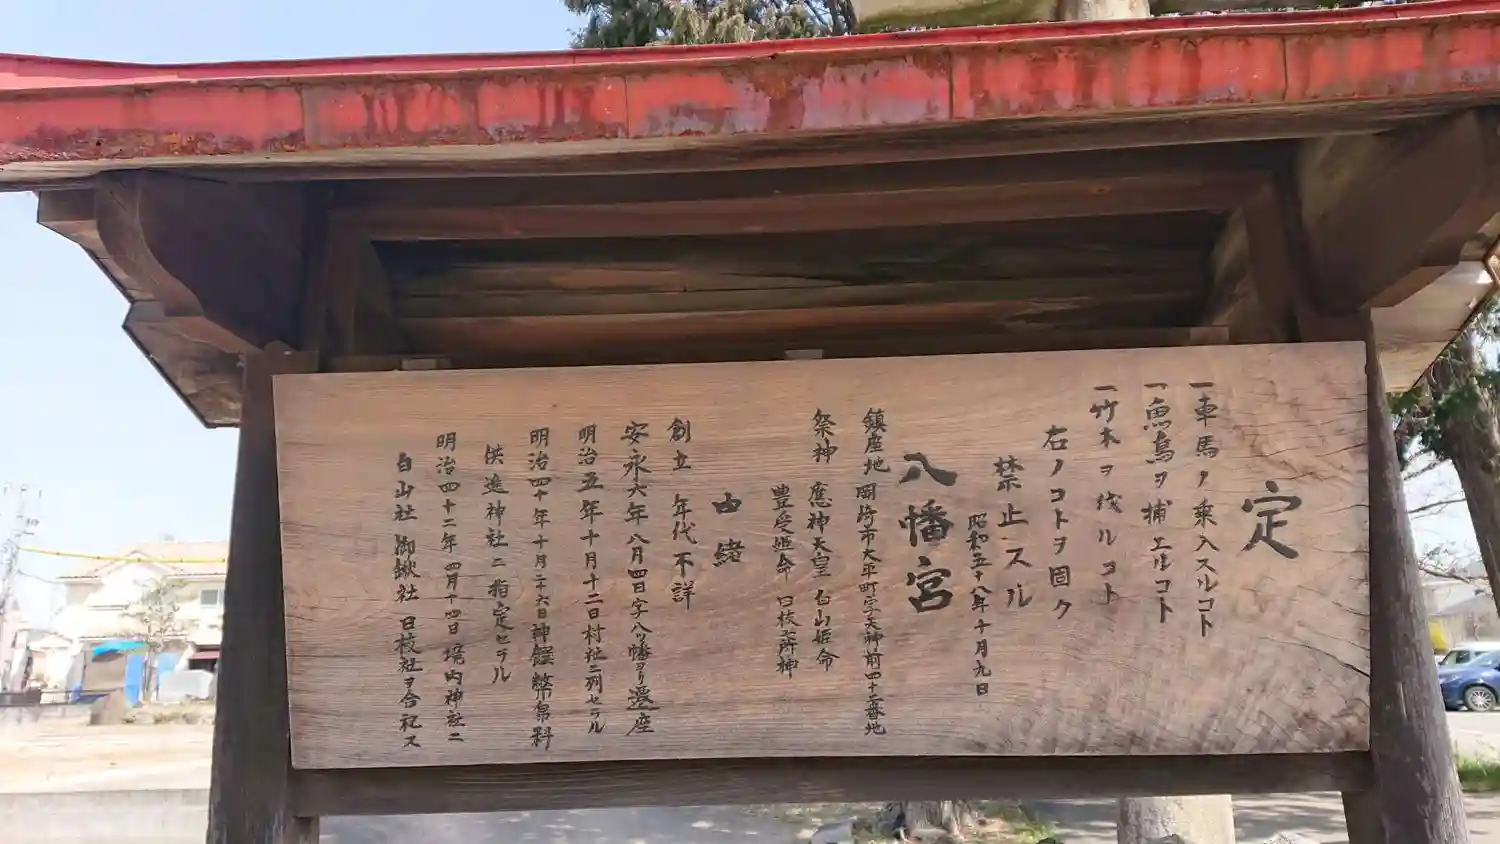 定
一車馬ノ乗入スルコト
一魚鳥ヲ捕エルコト
一竹木ヲ伐ルコト
右ノコトヲ固ク
禁止スル
昭和五十八年十月九日
八幡宮
鎮座地 岡崎市大平町字天神前四十二番地
祭神 應神天皇 白山姫命
豊受姫命 日枝之所神
由緒
創立 年代不詳
安永六年八月四日字八ッ幡ヨリ遷座
明治五年十月十二日村社ニ列セラル
明治四十年十月二十六日神饌幣帛料
供進神社ニ指定セラル
明治四十二年四月十四日境内神社ニ
白山社 御鍬社 日枝社ヲ合祀ス